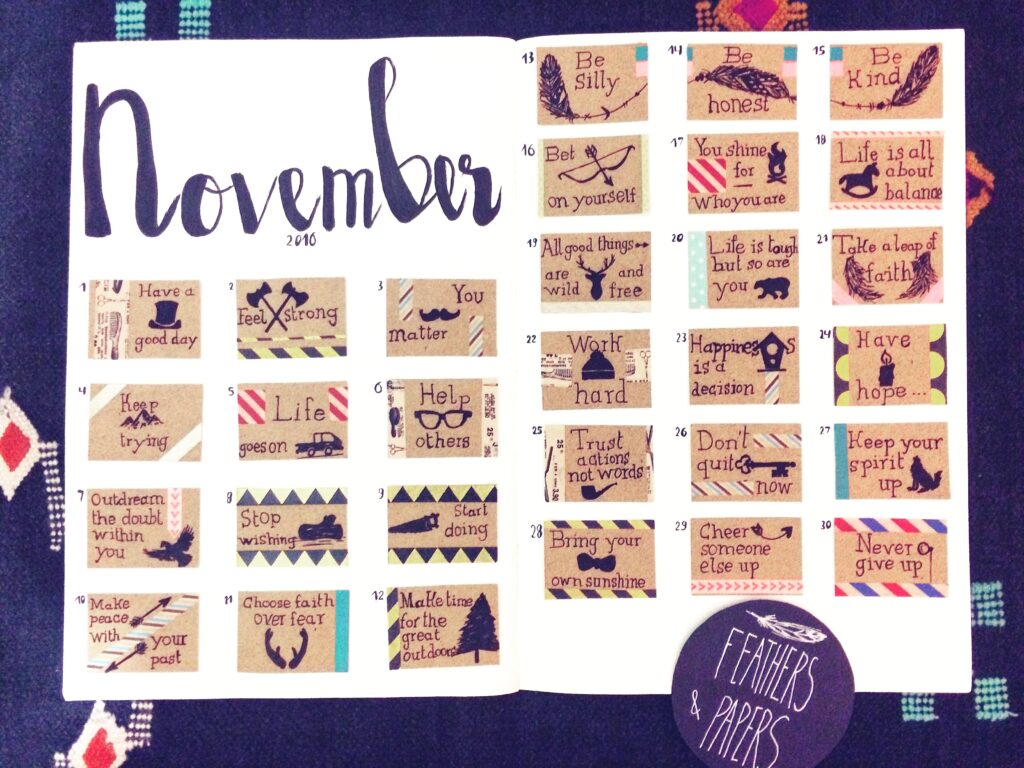 November
2016
1
Have a
good day
2
Feel strong
3
You
Matter
4
Keep
trying
5
Life
goes on
6
Help
others
7
Outdream
the doubt
within
you
8
Stop
wishing
9
Start
doing
10
Make
peace
with your
past
11
Choose faith
over fear
12
Make time
for the
great
outdoors
13
Be
Silly
14
Be
honest
15
Be
Kind
16
Bet
on yourself
17
You shine
for
Who you are
18
Life is all
about
balance
19
All good things
are and
wild free
20
Life is tough
but so are
you
21
Take a leap of
faith
22
Work
hard
23
Happiness
is a
decision
24
Have
hope...
25
Trust
actions
not words
26
Don't
quit
now
27
Keep your
spirit
up
28
Bring your
own sunshine
29
Cheer
someone
else up
30
Never
give up
FEATHERS
& PAPERS